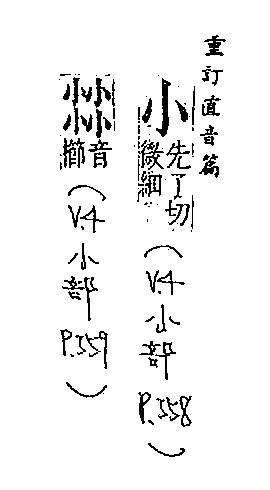 重訂直音篇
小 先了切 微細 (V.4 小部 P.558)
𡮐 音櫛 (V.4 小部 P.559)